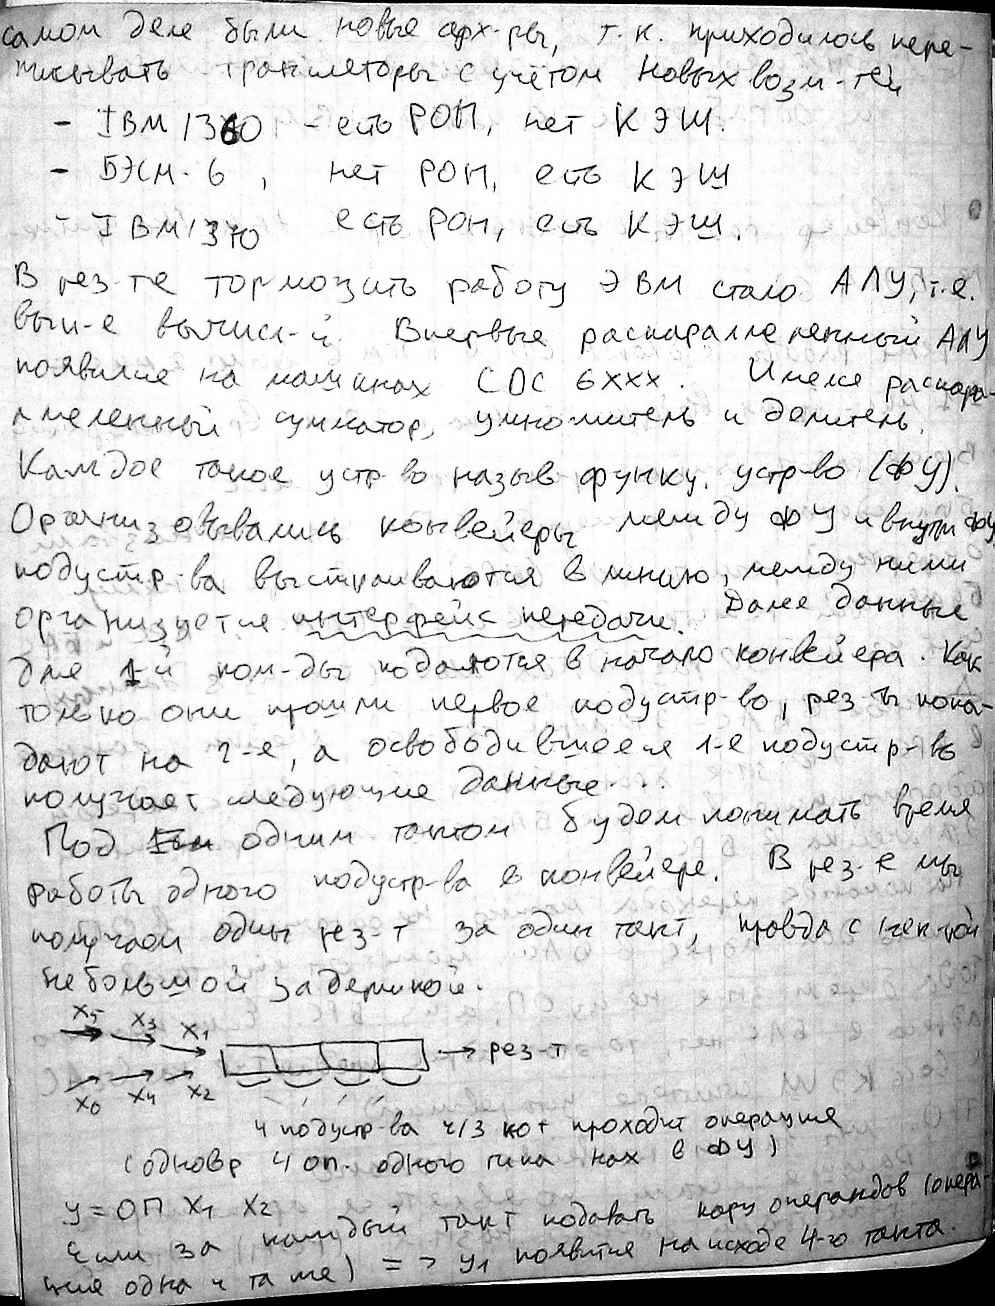 самом деле были новые арх-ры, т.к. приходилось пере-
писывать трансляторы с учётом новых возм-тей
- IBM/360 - есть РОН, нет КЭШ.
- БЭСМ-6, нет РОН, есть КЭШ
- IBM/370 есть РОН, есть КЭШ.
В рез-те тормозить работу ЭВМ стало АЛУ, т.е.
вып-е вычисл-й. Впервые распараллеленный АЛУ
появился на машинах CDC 6XXX. Имелся распара-
ллеленный сумматор, умножитель и делитель.
Каждое такое устр-во назыв функц. устр-во (ФУ).
Организовывались конвейеры между ФУ и внутри ФУ
подустр-ва выстраиваются в линию, между ними
организуется интерфейс передачи. Далее данные
для 1-й ком-ды подаются в начало конвейера. Как
только они прошли первое подустр-во, рез-ты попа-
дают на 2-е, а освободившееся 1-е подустр-во
получает следующие данные...
Под одним тактом будем понимать время
работы одного подустр-ва в конвейере. В рез-е мы
получаем один рез-т за один такт, правда с нек-рой
небольшой задержкой.
X5 X3 X1
→ рез-т
X6 X4 X2
4 подустр-ва ч/з кот проходит операция
(одновр 4 оп. одного типа нах в ФУ)
y = ОП X1 X2
Если за каждый такт подавать пару операндов (опера-
ция одна и та же) => y1 появится на исходе 4-го такта.